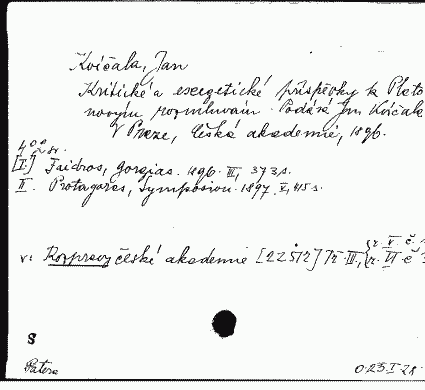 Kvíčala, Jan
Kritické a exegetické příspěvky k Plato
novým rozmluvám. Podává Jan Kvíčala
V Praze, Česká akademie, 1896.
4° 2 sv.
[I.] Faidros, Gorgias. 1896. III, 373 s.
II. Protagoras, Symposion. 1897. V, 415 s.
v: Rozpravy české akademie [22512] Tř. III., { r. V. č.
r. VI č
S
Patera
0.25.I.28.